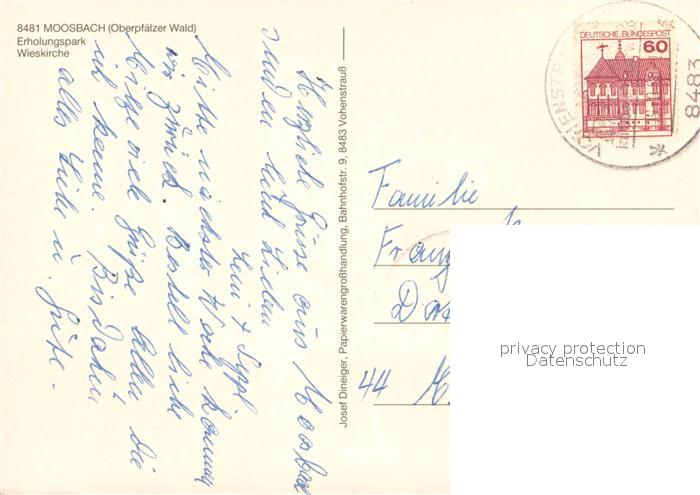 8481 MOOSBACH (Oberpfälzer Wald)
Erholungspark
Wieskirche
Herzliche Grüsse aus Moosbach
senden
Leni + Seppl
Mitte nächster Woche kommen
wir zurück. Bestell
viele Grüße Alle die
ich kenne. Bis dahin
alles Liebe u. Gute.
Josef Dineiger, Papierwarengroßhandlung, Bahnhofstr. 9, 8483 Vohenstrauß
DEUTSCHE BUNDESPOST
60
VOHENSTRA
8483
Familie
Franz
44 M
privacy protection
Datenschutz